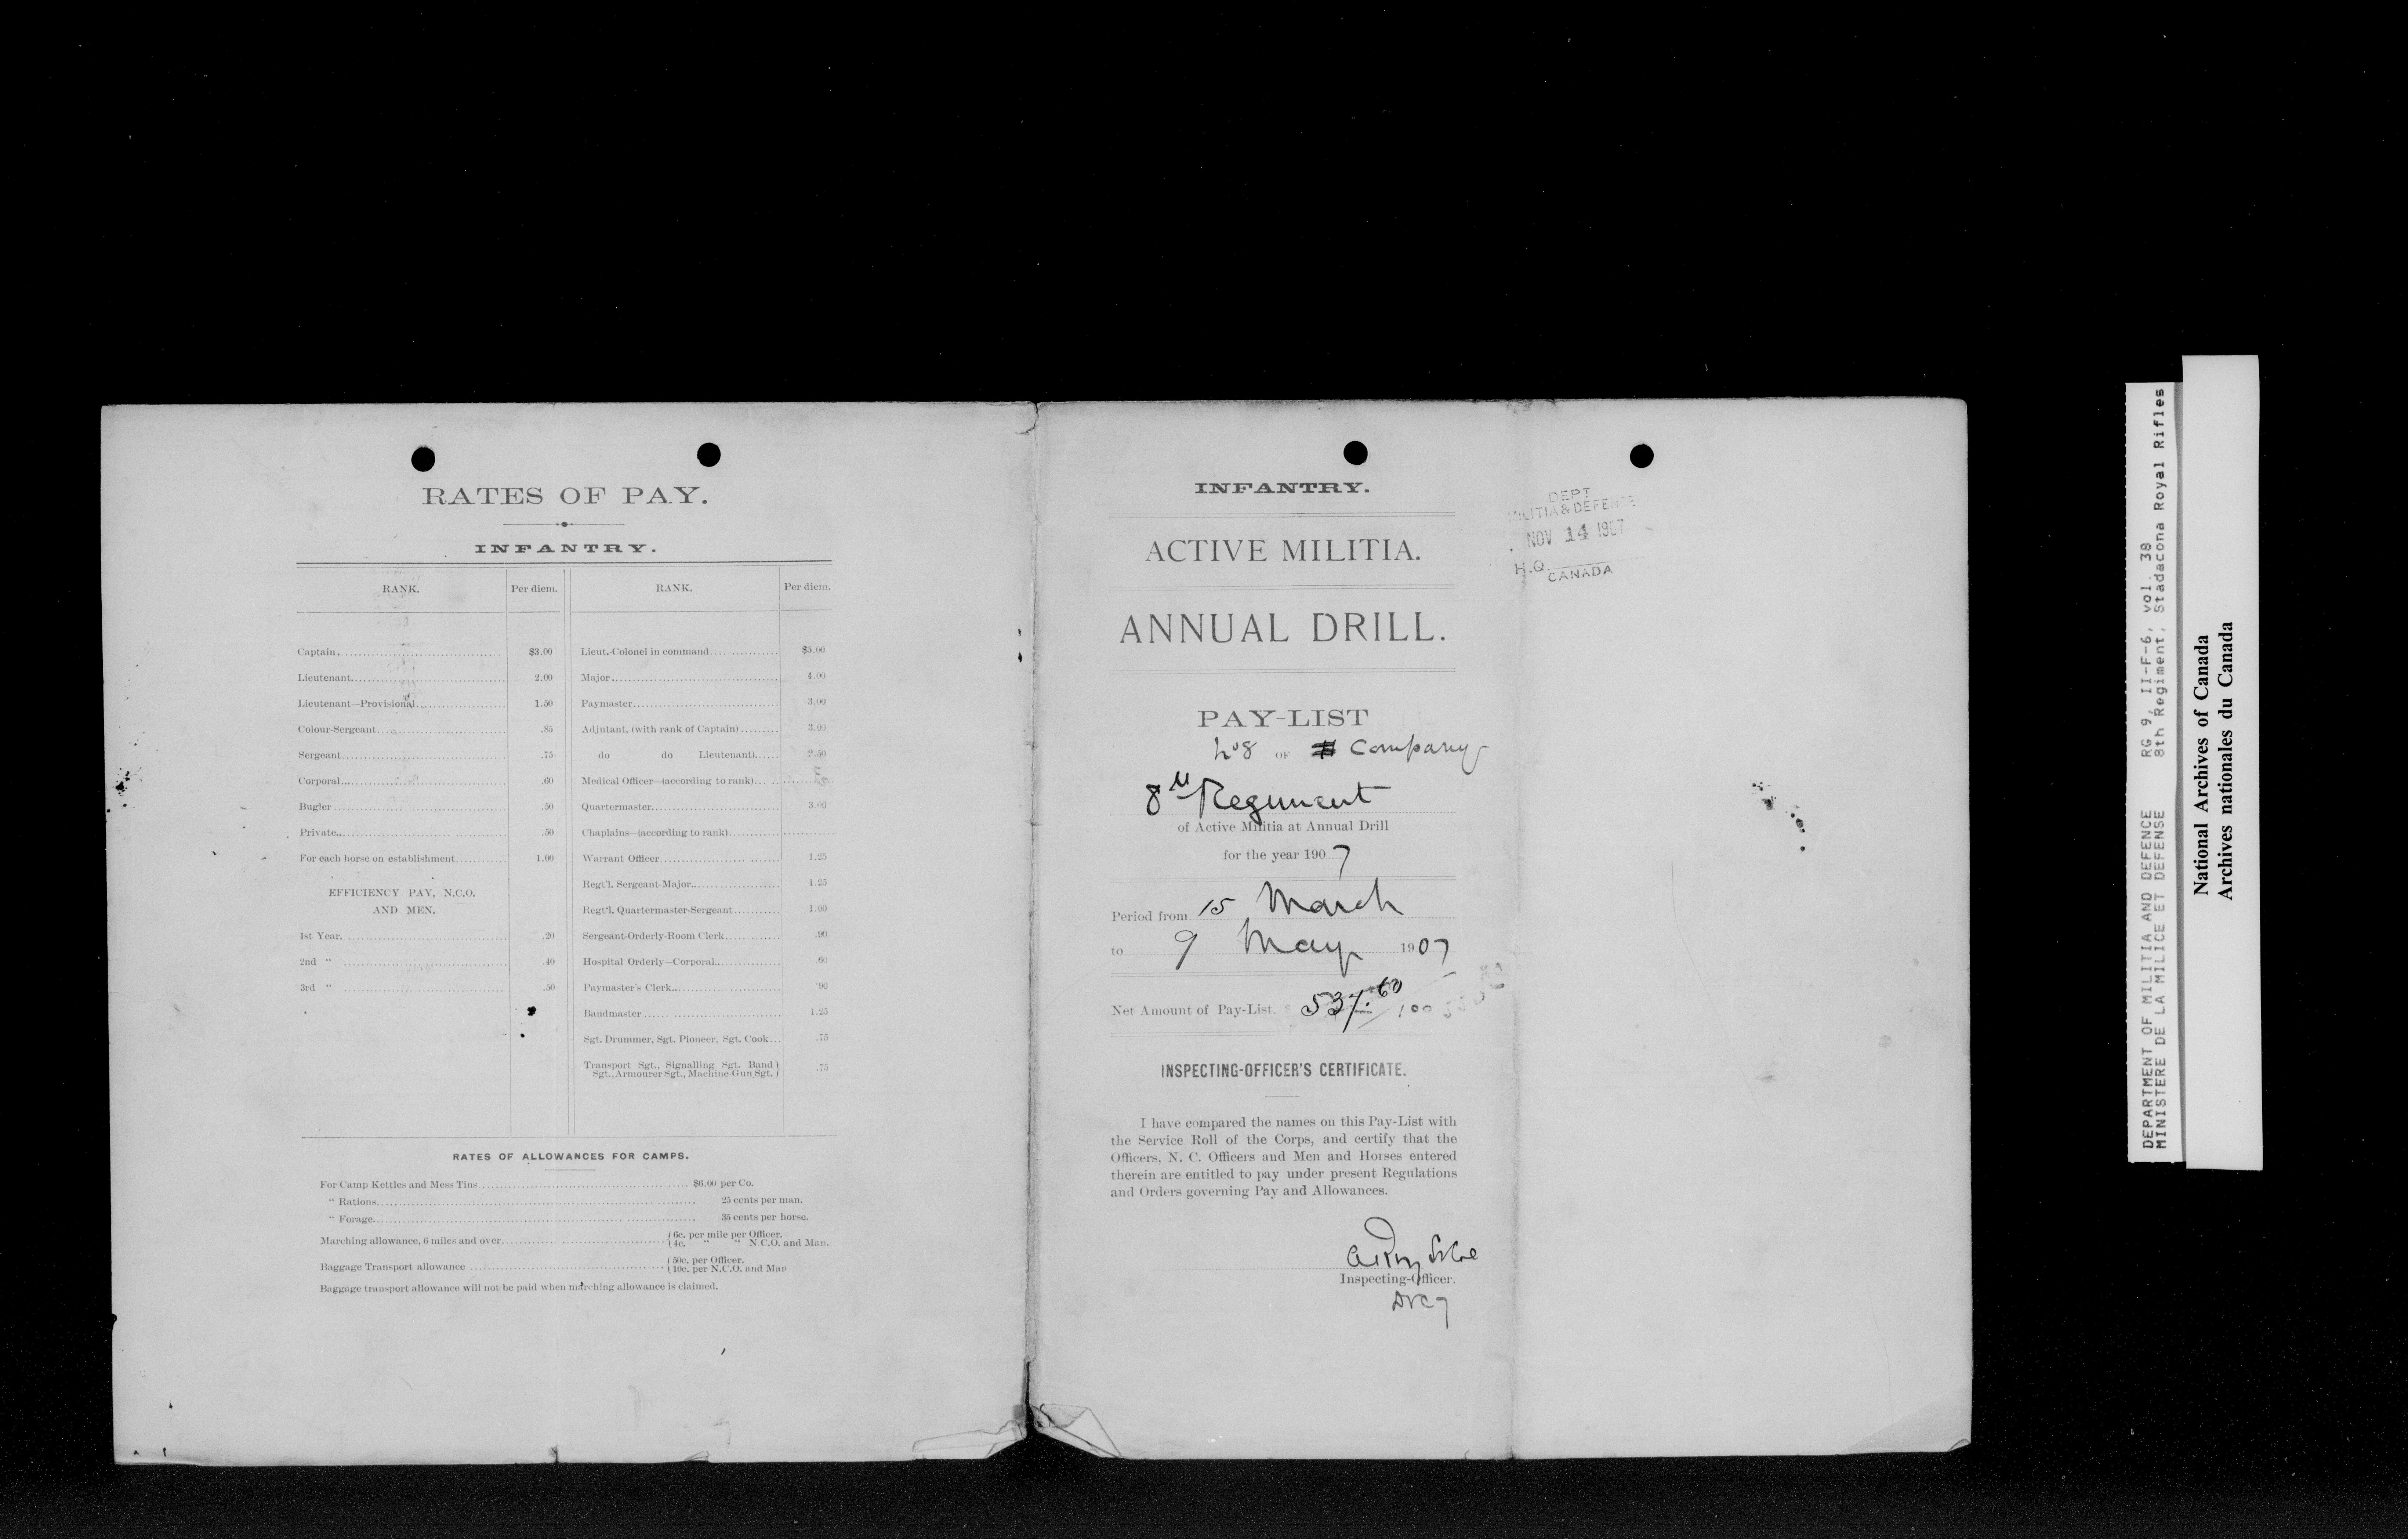 RATES OF PAY.
INFANTRY.
RANK. Per diem. RANK. Per diem.
Captain. $3.00 Lieut.-Colonel in command $5.00
Lieutenant. 2.00 Major. 4.00
Lieutenant—Provisional 1.50 Paymaster. 3.00
Colour-Sergeant .85 Adjutant, (with rank of Captain) 3.00
Sergeant .75 do do Lieutenant) 2.50
Corporal .60 Medical Officer—(according to rank)
Bugler .50 Quartermaster. 3.00
Private. .50 Chaplains—(according to rank)
For each horse on establishment 1.00 Warrant Officer 1.25
EFFICIENCY PAY, N.C.O. AND MEN. Regt'l. Sergeant-Major. 1.25
Regt'l. Quartermaster-Sergeant 1.00
1st Year. .20 Sergeant-Orderly-Room Clerk .90
2nd " .40 Hospital Orderly—Corporal. .60
3rd " .50 Paymaster's Clerk. .90
Bandmaster 1.25
Sgt. Drummer, Sgt. Pioneer, Sgt. Cook .75
Transport Sgt., Signalling Sgt. Band
Sgt., Armourer Sgt., Machine-Gun Sgt. .75
RATES OF ALLOWANCES FOR CAMPS.
For Camp Kettles and Mess Tins $6.00 per Co.
" Rations 25 cents per man.
" Forage 35 cents per horse.
Marching allowance, 6 miles and over 6c. per mile per Officer.
4c. " " N.C.O. and Man.
Baggage Transport allowance 50c. per Officer.
10c. per N.C.O. and Man
Baggage transport allowance will not be paid when marching allowance is claimed.
INFANTRY.
ACTIVE MILITIA.
ANNUAL DRILL.
PAY-LIST
No 8 OF Company
8th Regiment
of Active Militia at Annual Drill
for the year 1907
Period from 15 March
to 9 May 1907
Net Amount of Pay-List. $ 537.60
INSPECTING-OFFICER'S CERTIFICATE.
I have compared the names on this Pay-List with
the Service Roll of the Corps, and certify that the
Officers, N. C. Officers and Men and Horses entered
therein are entitled to pay under present Regulations
and Orders governing Pay and Allowances.
Inspecting-Officer.
DEPT
MILITIA & DEFENCE
NOV 14 1907
H.Q.
CANADA
DEPARTMENT OF MILITIA AND DEFENCE RG 9, II-F-6, vol. 38
MINISTERE DE LA MILICE ET DEFENSE 8th Regiment, Stadacona Royal Rifles
National Archives of Canada
Archives nationales du Canada